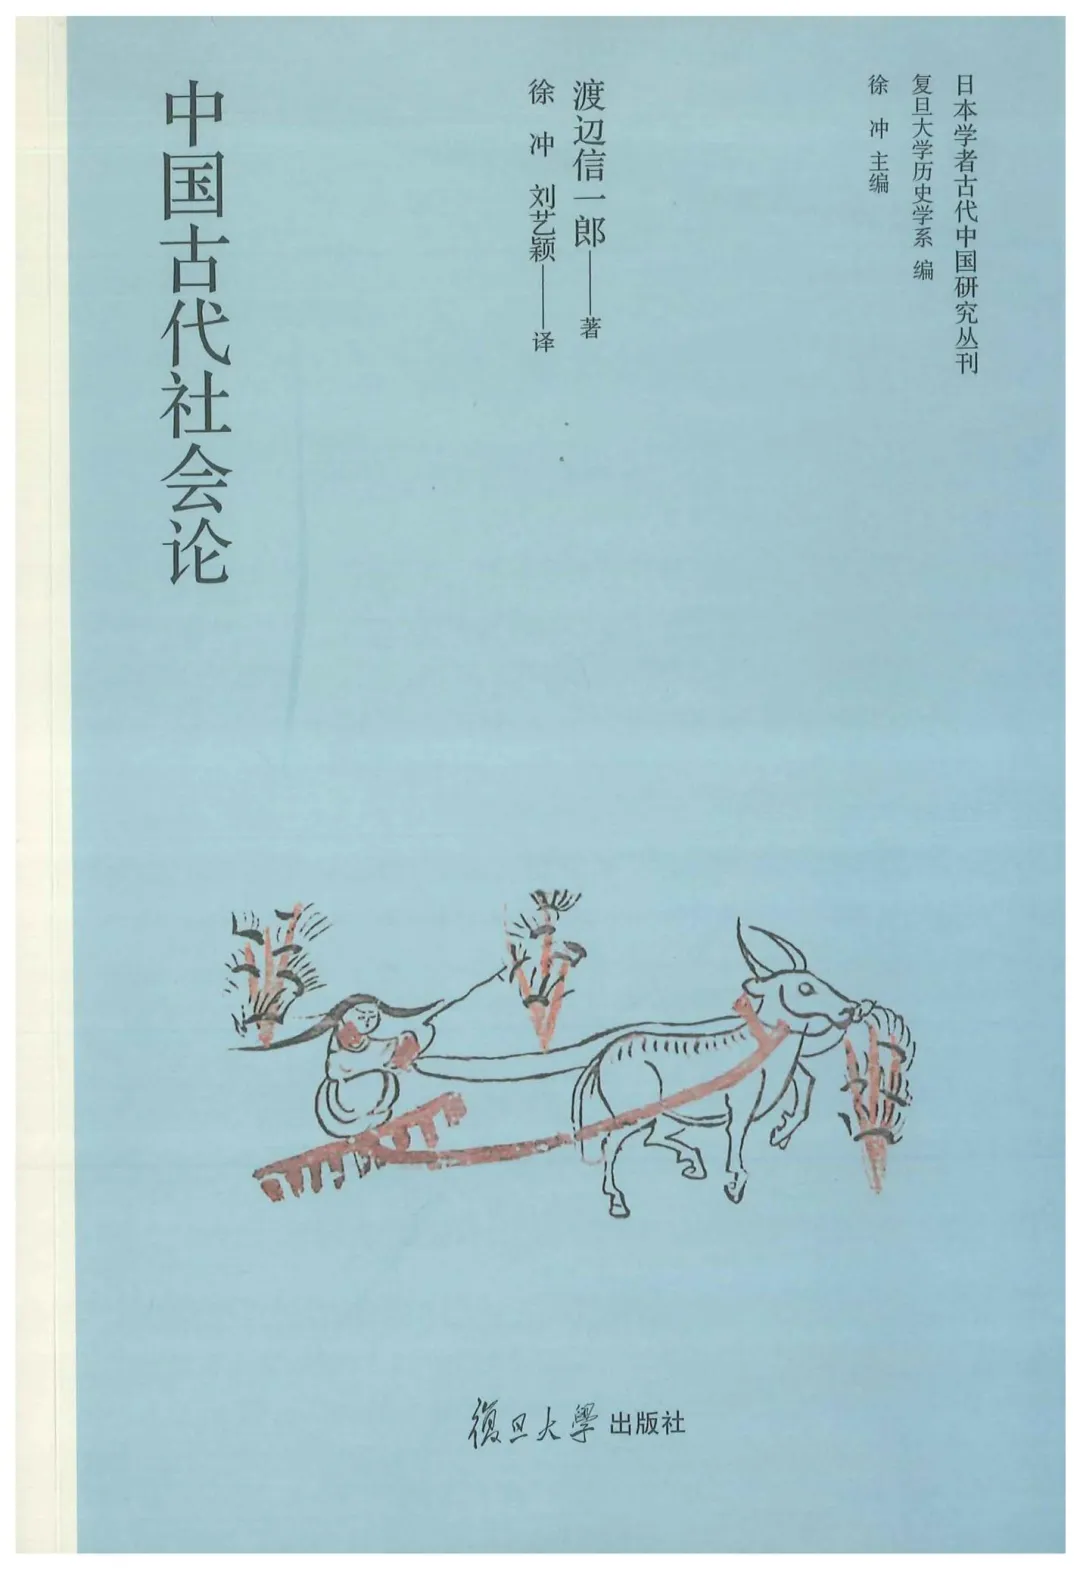 日本学者古代中国研究丛刊
复旦大学历史学系 编
徐 冲 主编
渡辺信一郎——著
徐 冲 刘艺颖——译
中国古代社会论
復旦大學出版社